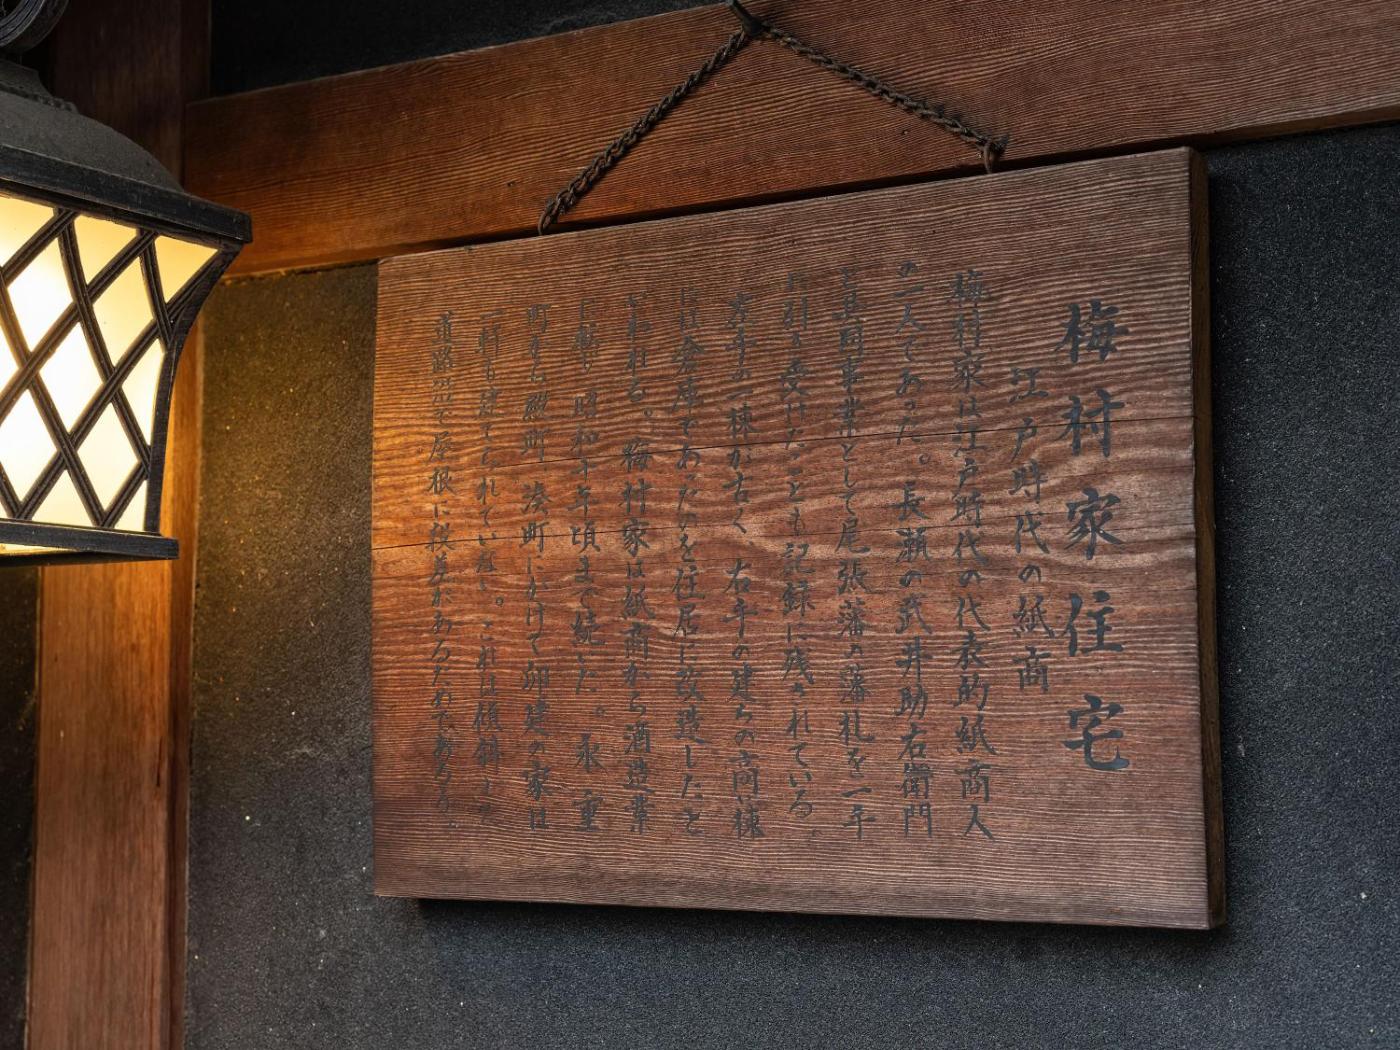 梅村家住宅
江戸時代の紙商
梅村家は江戸時代の代表的紙商人
の一人であった。長瀬の武井助右衛門
と共同事業として尾張藩の藩札を一手
に引き受けたことも記録に残されている。
左手の一棟が古く 右手の建ちの高い棟
には倉庫であったのを住居に改造したと
いわれる。梅村家は紙商から酒造業
に転じ 昭和十年頃まで続いた。永重
町から殿町 湊町にかけて卯建の家は
一軒も建てられていない。これは傾斜した
道路沿で屋根に段差があるためであろう。